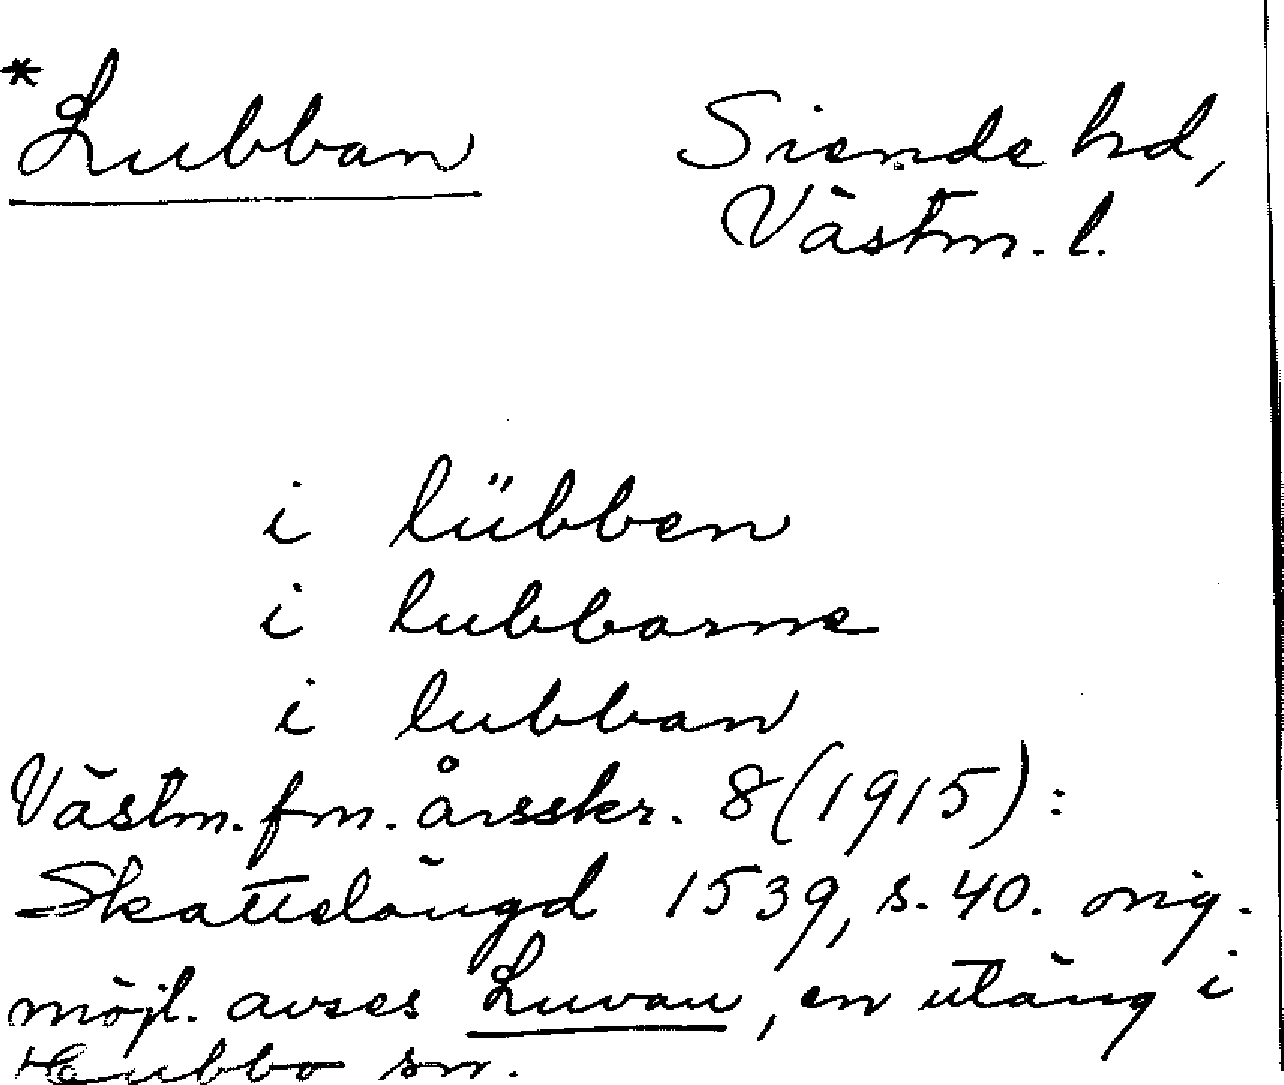 *Lubban Siende hd,
Västm. l.
i lübben
i lubbarne
i lubban
Västm. fm. årsskr. 8 (1915):
Skattelängd 1539, s. 40. orig.
möjl. avses Luvan, en utäng i
Hubbo sn.